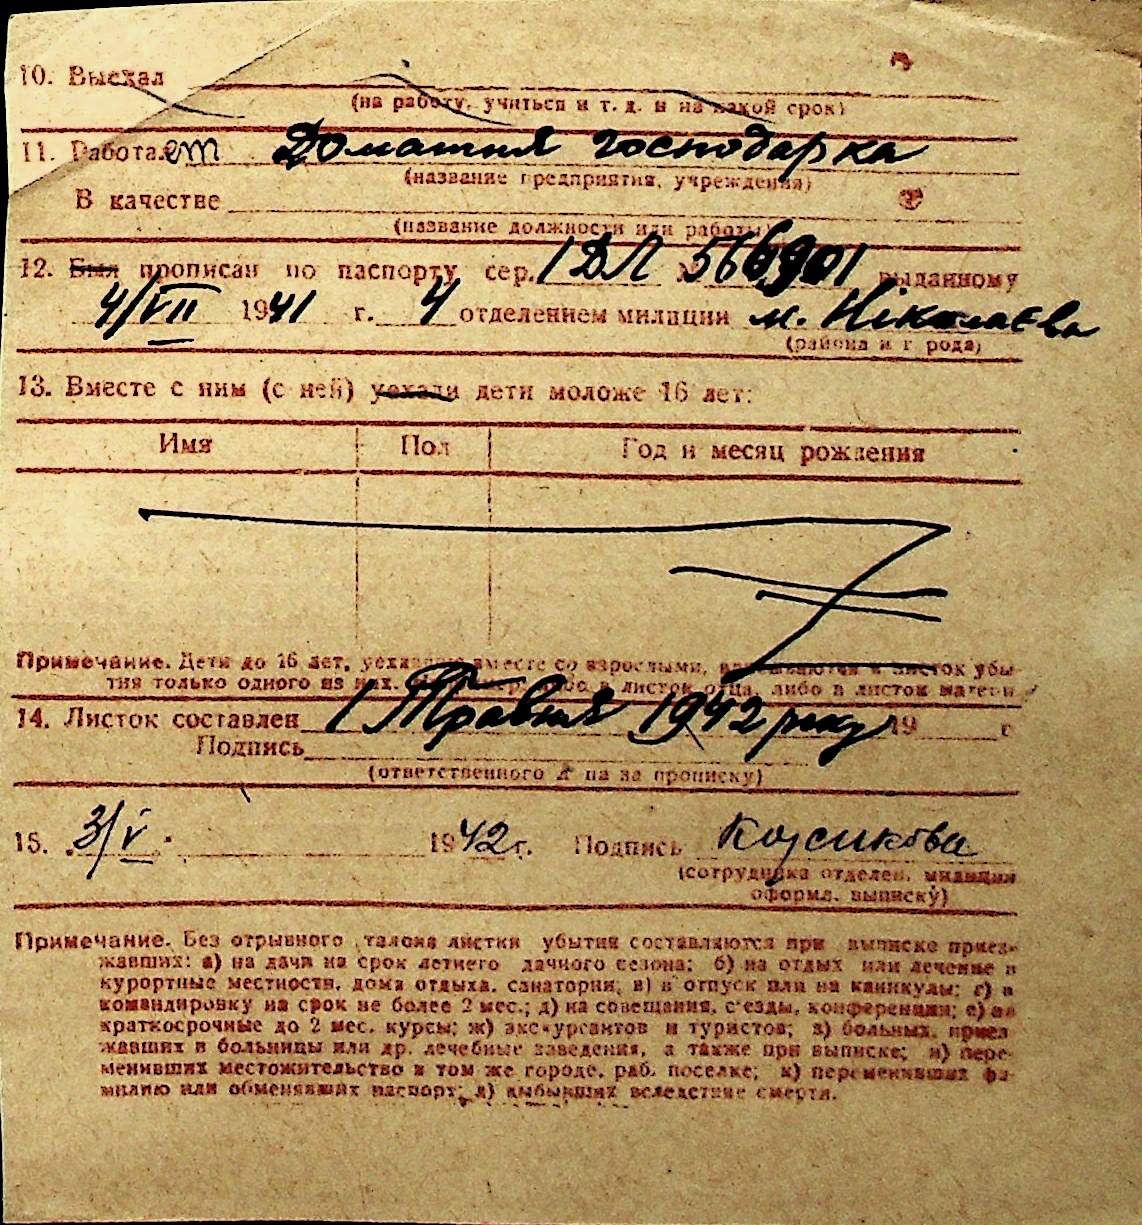 10. Выехал
(на работу, учиться и т. д. и на какой срок)
11. Работает Домашня господарка
(название предприятия, учреждения)
В качестве
(название должности или работы)
12. Был прописан по паспорту сер. І ДЛ № выданному
4/VII 1941 г. 4 отделением милиции м. Ніколаєва
(района и города)
13. Вместе с ним (с ней) уехали дети моложе 16 лет:
Имя Пол Год и месяц рождения
Примечание. Дети до 16 лет, уехавшие вместе со взрослыми, вписываются в листок убы-
тия только одного из них. либо в листок отца, либо в листок матери
14. Листок составлен 1 Травня 1942 року 19 г
Подпись
(ответственного лица за прописку)
15. 3/V 1942 г. Подпись
(сотрудника отделен. милиции
оформл. выписку)
Примечание. Без отрывного талона листки убытия составляются при выписке приез-
жавших: а) на дачи на срок летнего дачного сезона; б) на отдых или лечение в
курортные местности, дома отдыха, санатории; в) в отпуск или на каникулы; г) в
командировку на срок не более 2 мес.; д) на совещания, с'езды, конференции; е) на
краткосрочные до 2 мес. курсы; ж) экскурсантов и туристов; з) больных, приез
жавших в больницы или др. лечебные заведения, а также при выписке; и) пере-
менивших местожительство в том же городе, раб. поселке; к) переменивших фа-
милию или обменявших паспорт; л) выбывших вследствие смерти.